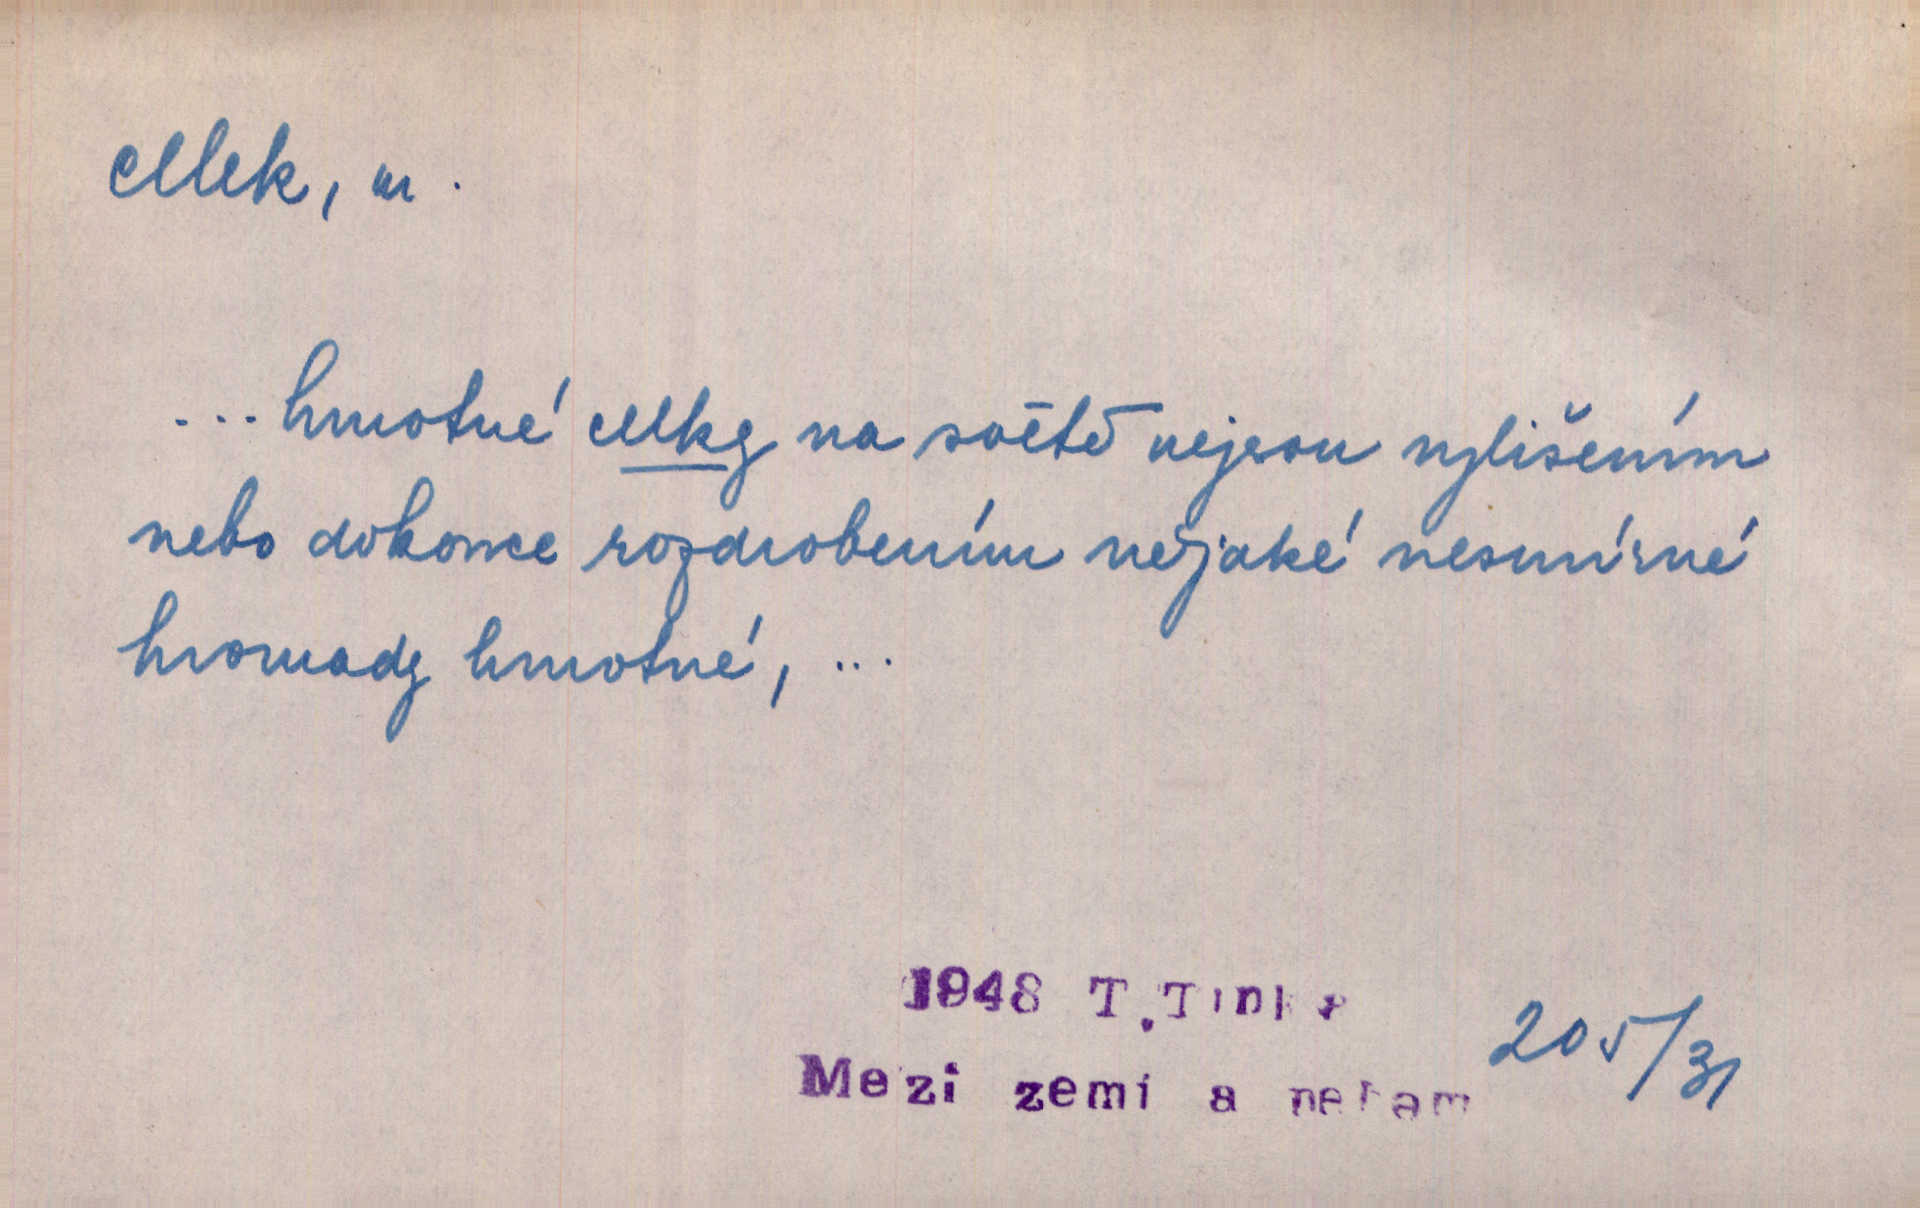 celek, m.
... hmotné celky na světě nejsou vylišením
nebo dokonce rozdrobením nějaké nesmírné
hromady hmotné, ...
1948 T.Tinka
Mezi zemí a nebam
205/31